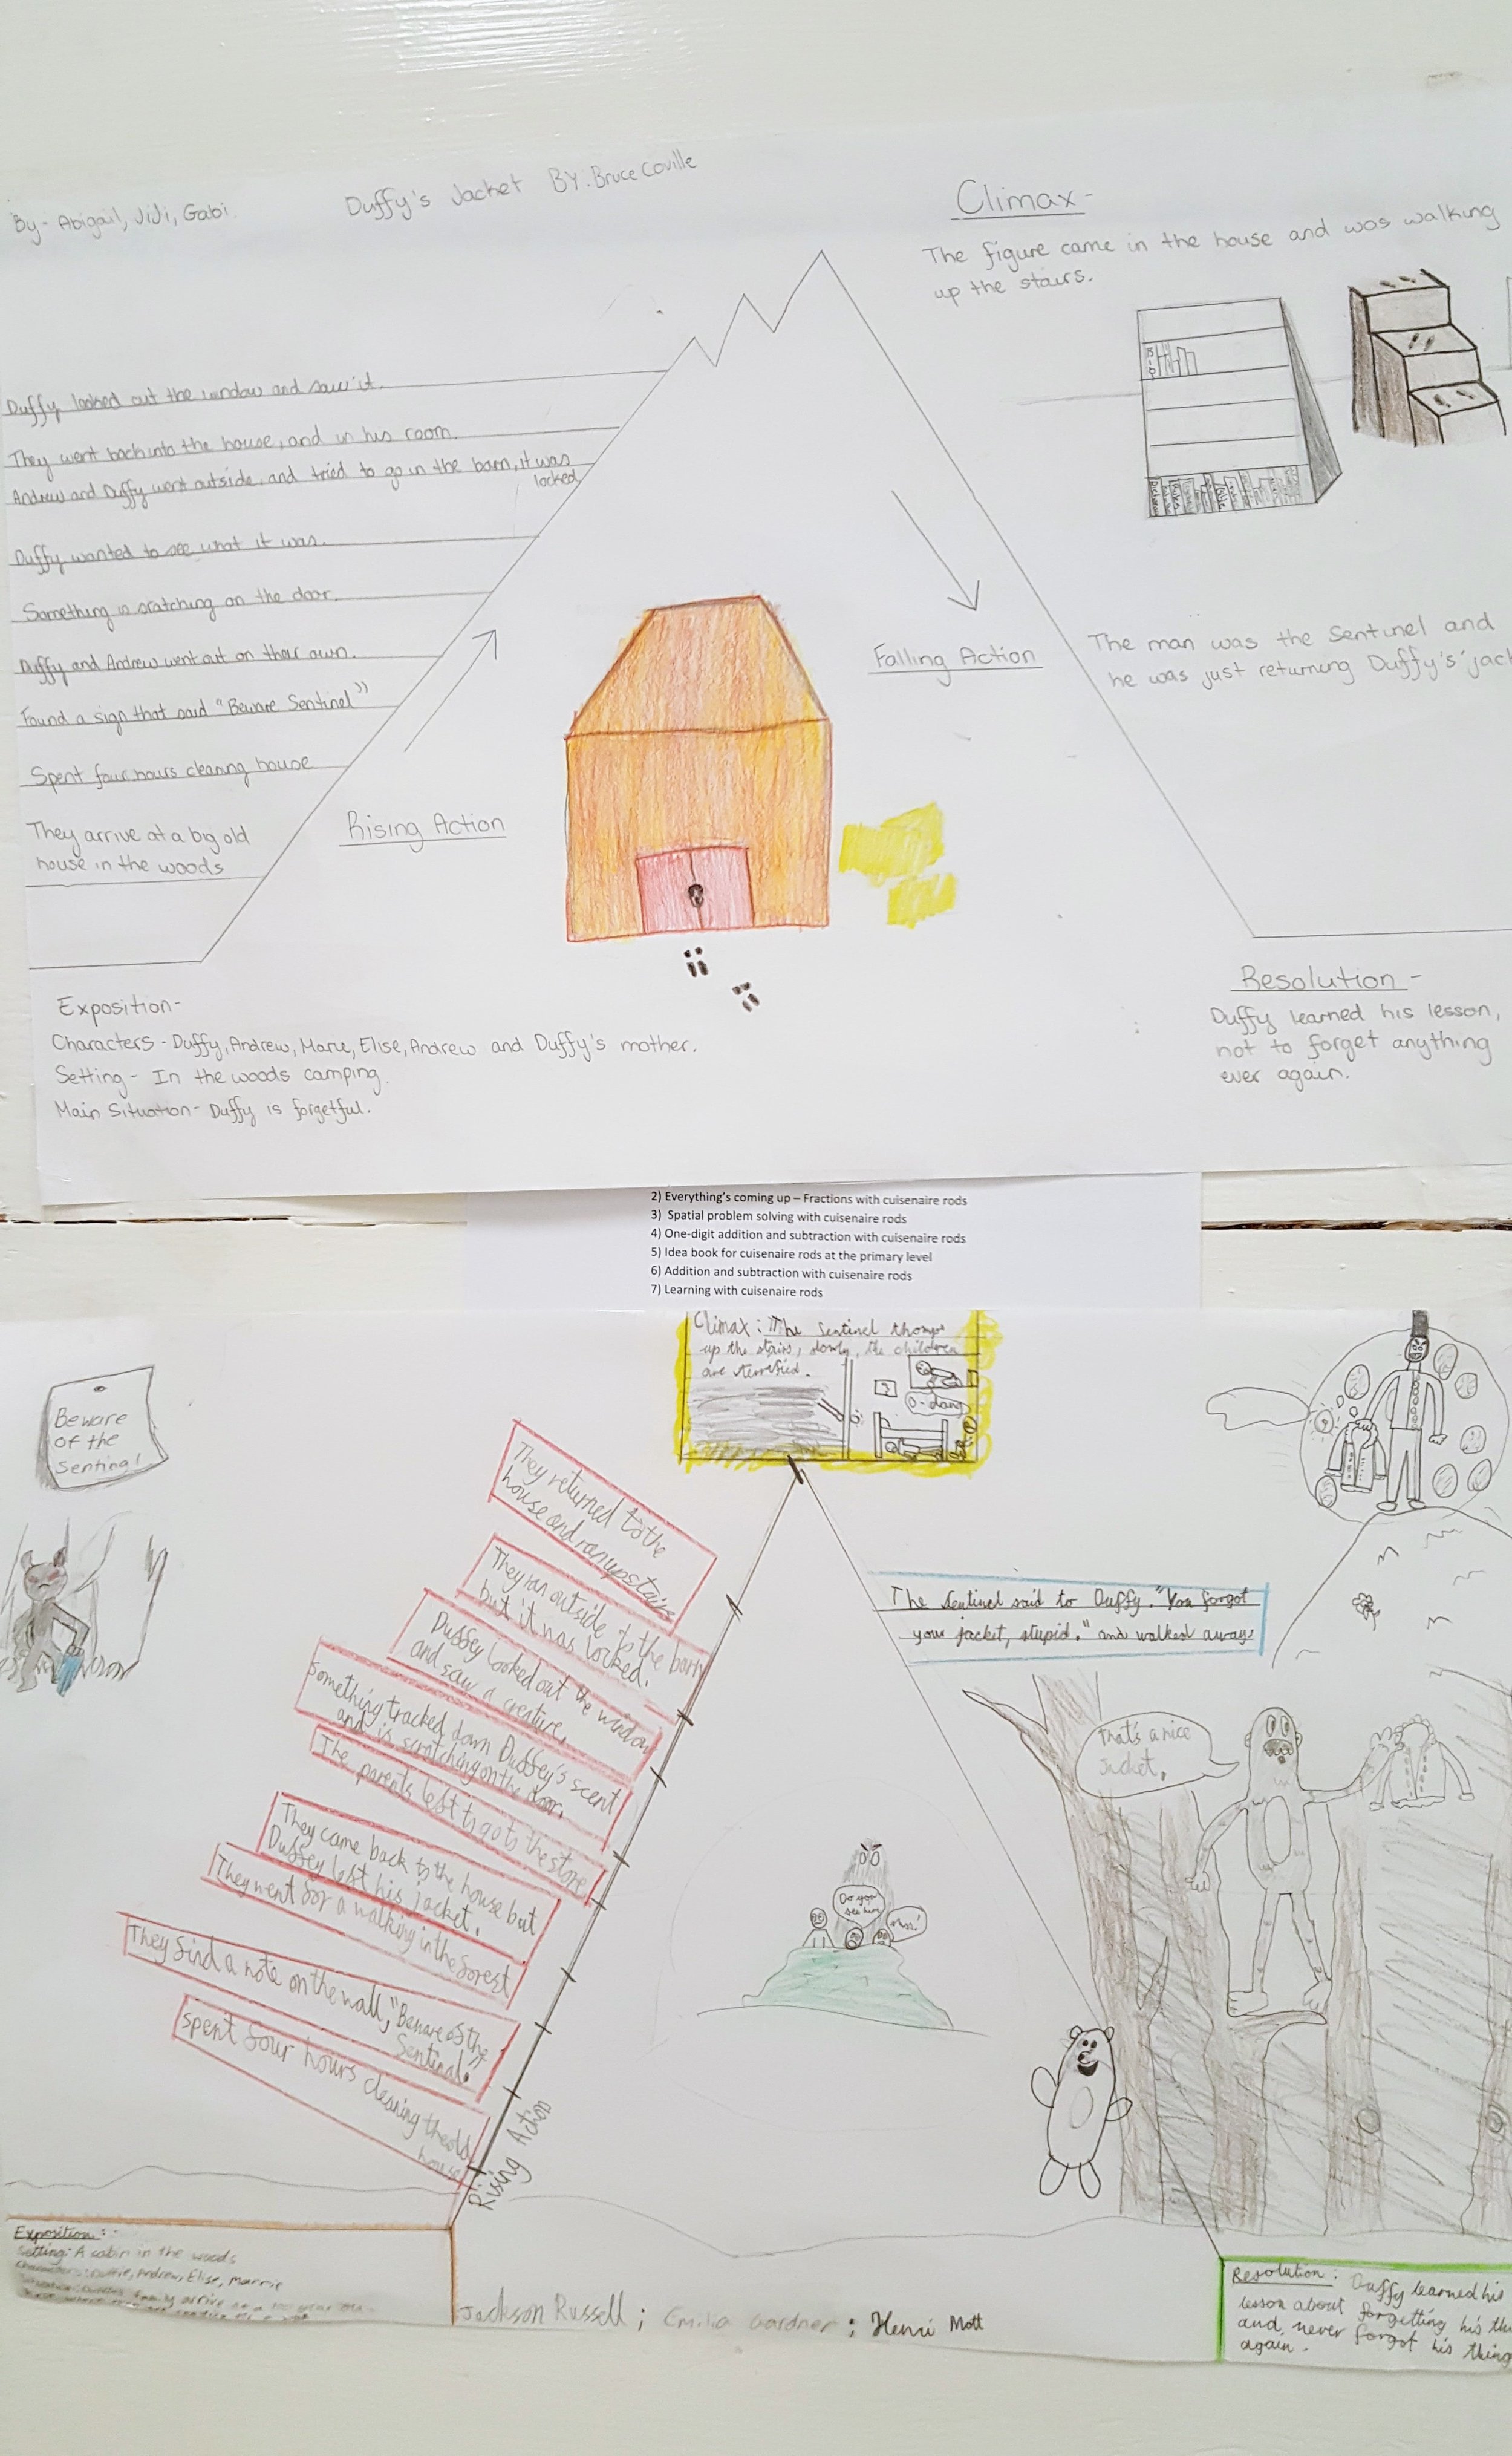 By- Abigail, JiJi, Gabi
Duffy's Jacket BY: Bruce Coville
Climax-
The figure came in the house and was walking
up the stairs.
Duffy looked out the window and saw it.
They went back into the house, and in his room.
Andrew and Duffy went outside, and tried to go in the barn, it was
locked
Duffy wanted to see what it was.
Something is scratching on the door.
Duffy and Andrew went out on their own.
Found a sign that said "Beware Sentinel"
Spent four hours cleaning house
They arrive at a big old
house in the woods
Rising Action
Falling Action
The man was the Sentinel and
he was just returning Duffy's jac
Exposition-
Characters - Duffy, Andrew, Marie, Elise, Andrew and Duffy's mother.
Setting - In the woods camping.
Main Situation - Duffy is forgetful.
Resolution -
Duffy learned his lesson,
not to forget anything
ever again.
2) Everything's coming up – Fractions with cuisenaire rods
3) Spatial problem solving with cuisenaire rods
4) One-digit addition and subtraction with cuisenaire rods
5) Idea book for cuisenaire rods at the primary level
6) Addition and subtraction with cuisenaire rods
7) Learning with cuisenaire rods
Climax: The Sentinel
up the stairs, slowly, the children
are terrified.
Beware
of the
Sentinal
They returned to the
house and ran upstairs
They ran outside to the barn
but it was locked.
Duffey looked out the window
and saw a creature.
Something tracked down Duffey's scent
and is scratching on the door.
The parents left to go to the store
They came back to the house but
Duffey left his jacket.
They went for a walking in the forest
They find a note on the wall, "Beware of the
Sentinal."
spent four hours cleaning the old
house
Rising Action
The Sentinel said to Duffy. "You forgot
your jacket, stupid." and walked away.
That's a nice
Jacket.
Do you
see him
Exposition:
Setting: A cabin in the woods
Andrew, Elise, Marrie
Jackson Russell; Emilia Gardner; Henri Mott
Resolution: Duffy learned his
lesson about forgetting his
and never forgot his thing
again.